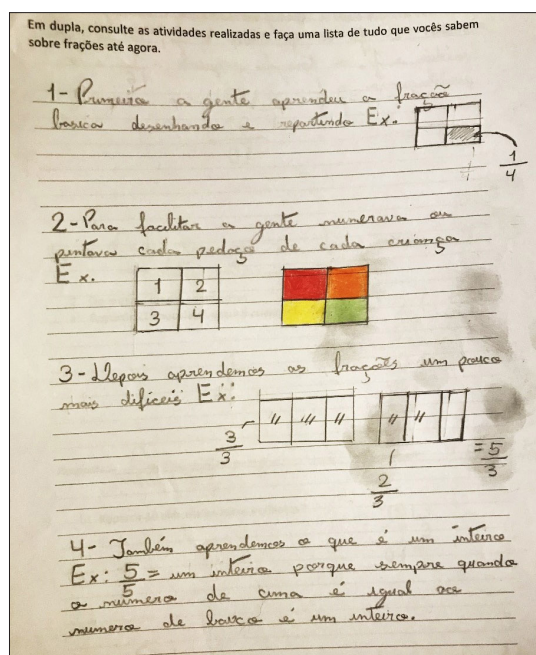 Em dupla, consulte as atividades realizadas e faça uma lista de tudo que vocês sabem
sobre frações até agora.
1- Primeiro a gente aprendeu a fração
basica desenhando e repartindo Ex:
1
4
2- Para facilitar a gente numerava ou
pintava cada pedaço de cada criança
Ex.
1 2
3 4
3- Depois aprendemos as frações um pouco
mais difíceis Ex:
3
3
2
3
= 5
3
4- Também aprendemos o que é um inteiro
Ex: 5 = um inteiro porque sempre quando
5
o número de cima é igual ao
numero de baixo é um inteiro.